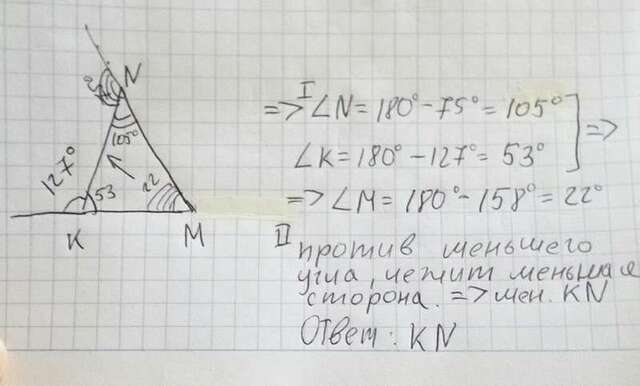 N
75°
105°
127°
53
22
K
M
=> I ∠N = 180° - 75° = 105°
∠K = 180° - 127° = 53° ] =>
=> ∠M = 180° - 158° = 22°
II против меньшего
угла, лежит меньшая
сторона. => мен. KN
Ответ: KN